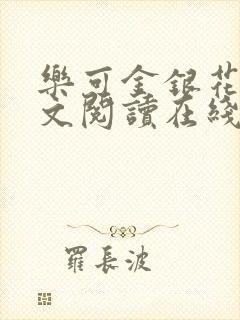 樂可金銀花
文閱讀在綫
羅長波